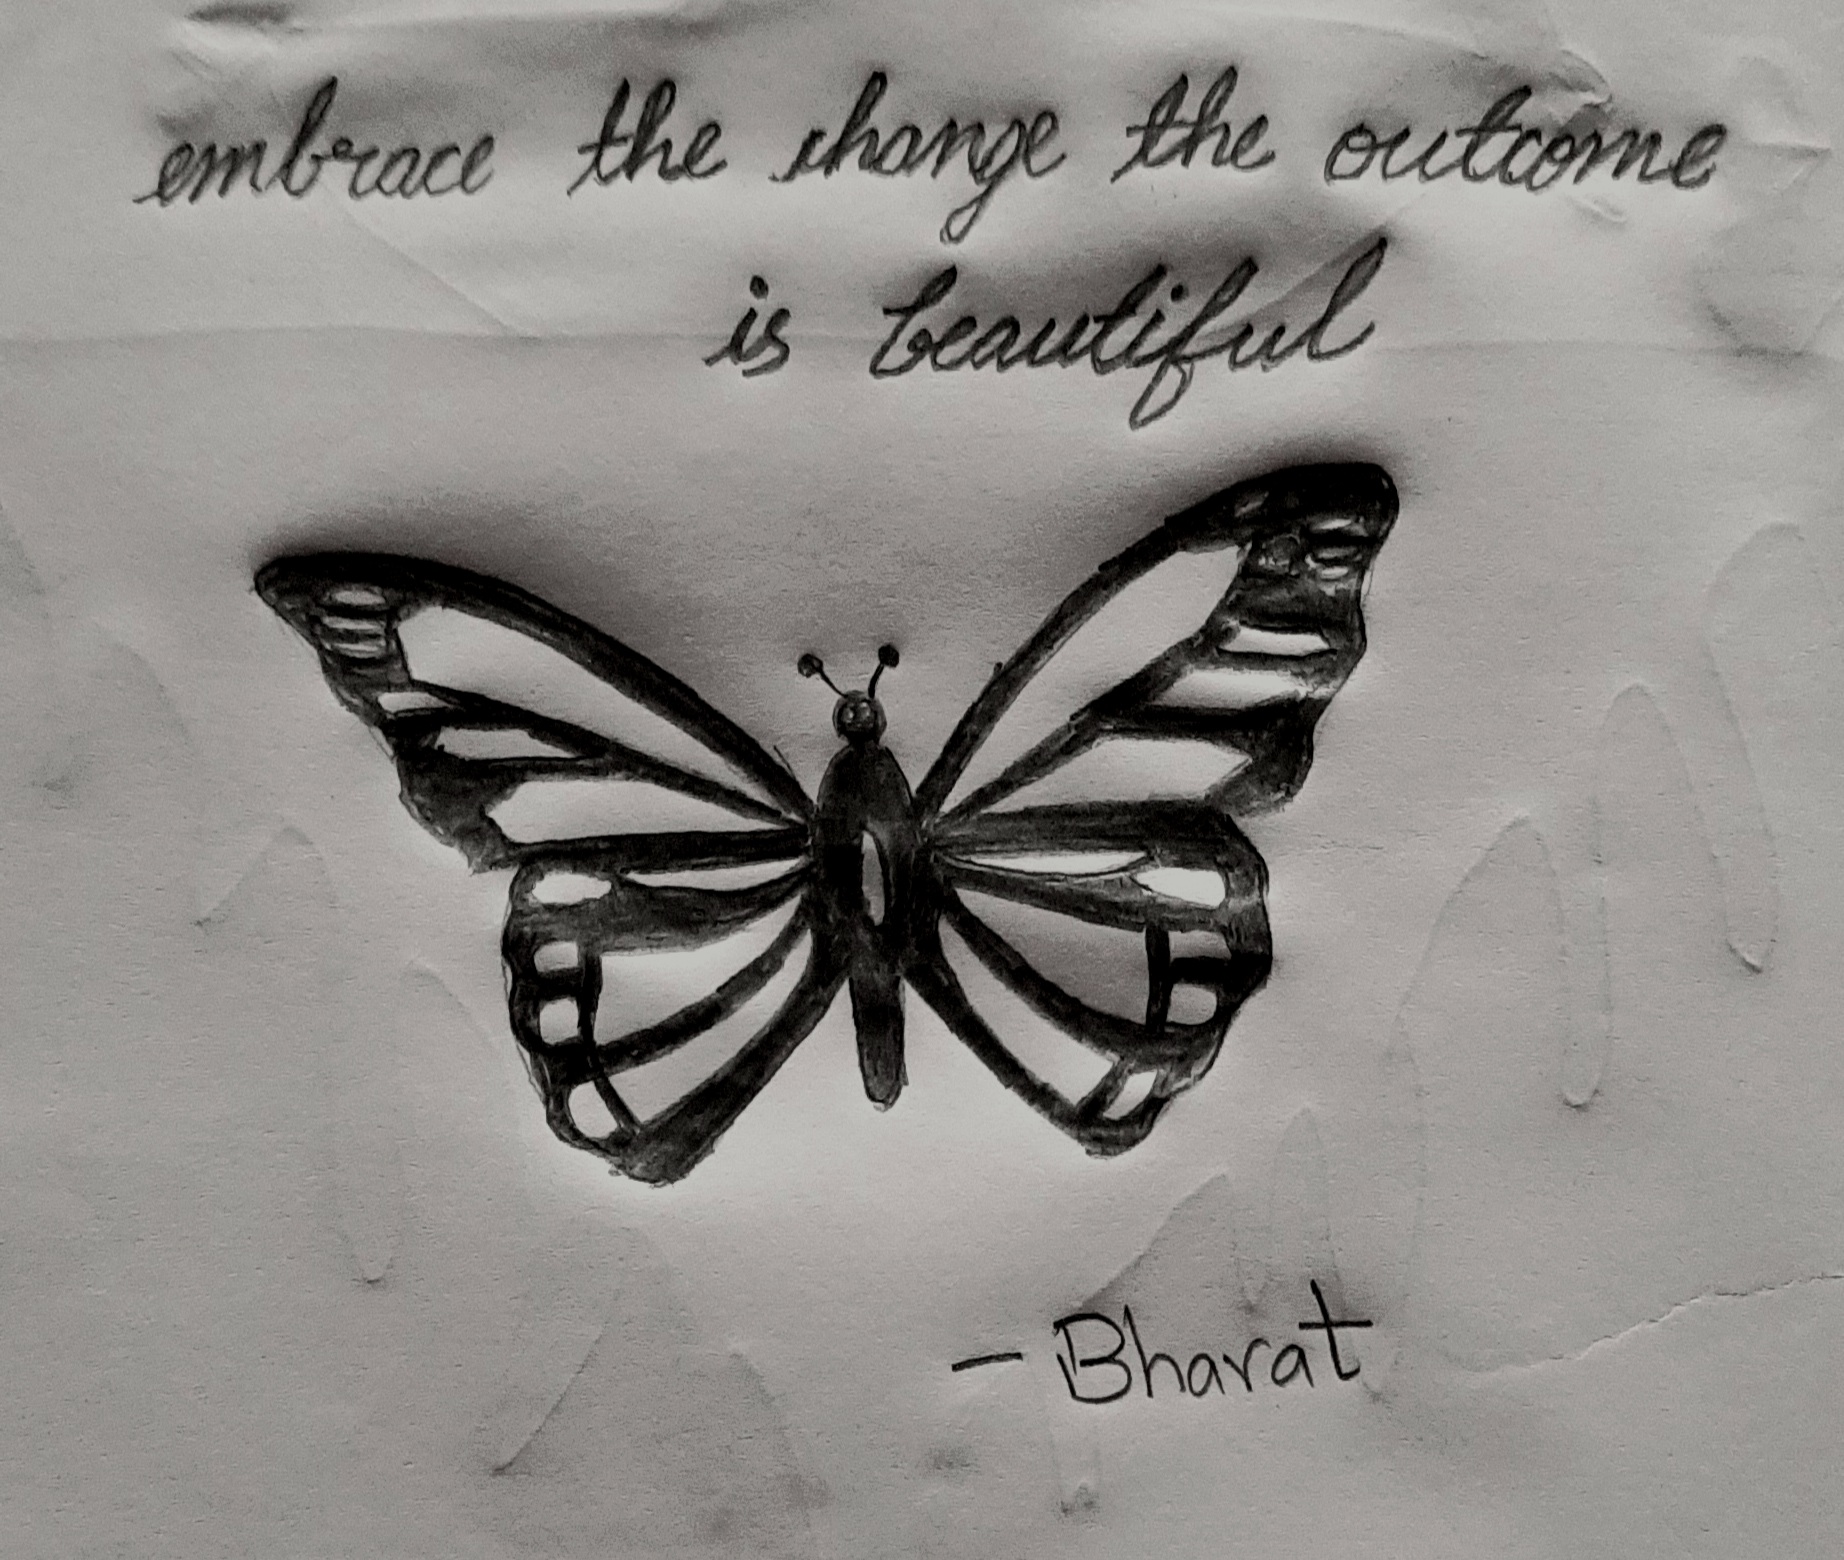 embrace the change the outcome
is beautiful
- Bharat